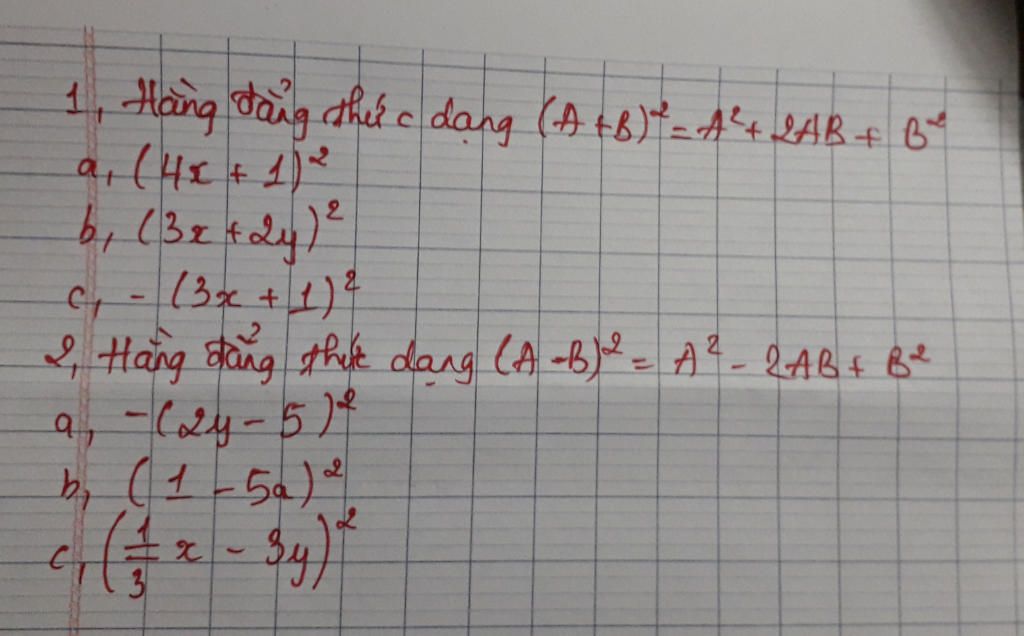 1, Hằng đẳng thức dạng (A+B)² = A² + 2AB + B²
a, (4x + 1)²
b, (3x + 2y)²
c, - (3x + 1)²
2, Hằng đẳng thức dạng (A - B)² = A² - 2AB + B²
a, -(2y - 5)²
b, (1 - 5a)²
c, (1/3 x - 3y)²